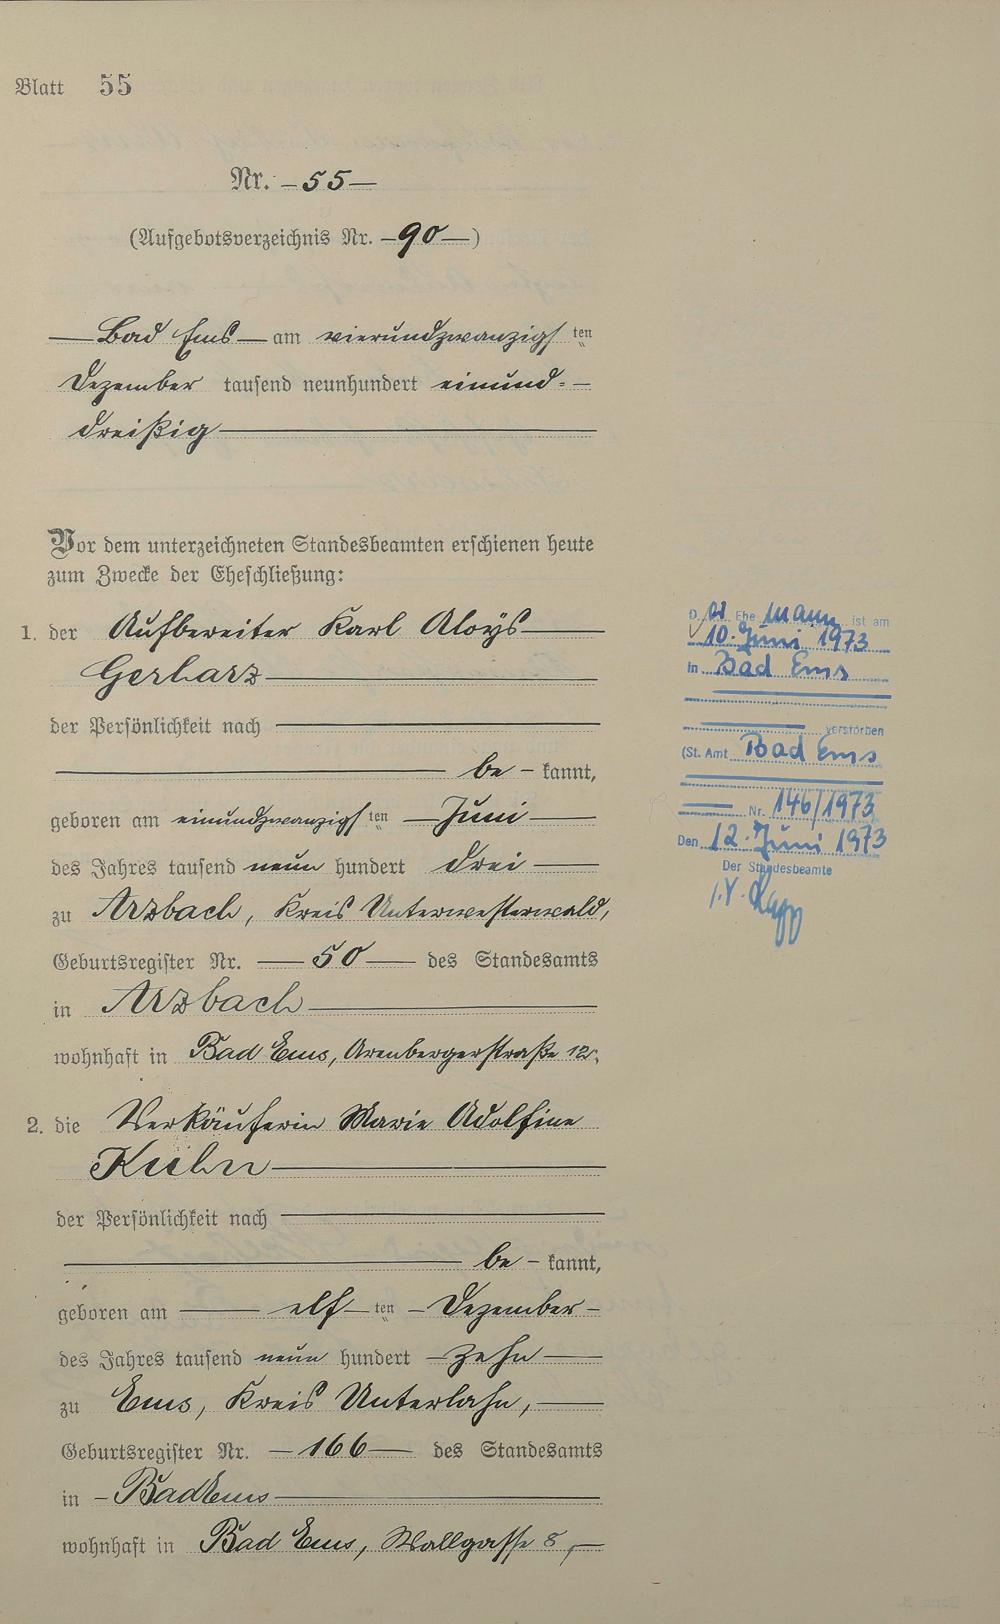 Blatt 55
Nr. — 55 —
(Aufgebotsverzeichnis Nr. — 90 —)
— Bad Ems — am vierundzwanzigsten
Dezember tausend neunhundert einund=
dreißig
Vor dem unterzeichneten Standesbeamten erschienen heute
zum Zwecke der Eheschließung:
1. der Aufbereiter Karl Aloys
Gerharz
der Persönlichkeit nach
be - kannt,
geboren am einundzwanzigsten — Juni —
des Jahres tausend neun hundert drei
zu Arzbach, Kreis Unterwesterwald,
Geburtsregister Nr. — 50 — des Standesamts
in Arzbach
wohnhaft in Bad Ems, Arenbergerstraße 12,
2. die Verkäuferin Marie Adolfine
Kuhn
der Persönlichkeit nach
be - kannt,
geboren am — elf — ten — Dezember —
des Jahres tausend neun hundert — zehn —
zu Ems, Kreis Unterlahn, —
Geburtsregister Nr. — 166 — des Standesamts
in — Bad Ems
wohnhaft in Bad Ems, Wallgasse 8, —
D er Ehe mann ist am
10. Juni 1973
in Bad Ems
verstorben
(St. Amt Bad Ems
Nr. 146/1973
Den 12. Juni 1973
Der Standesbeamte